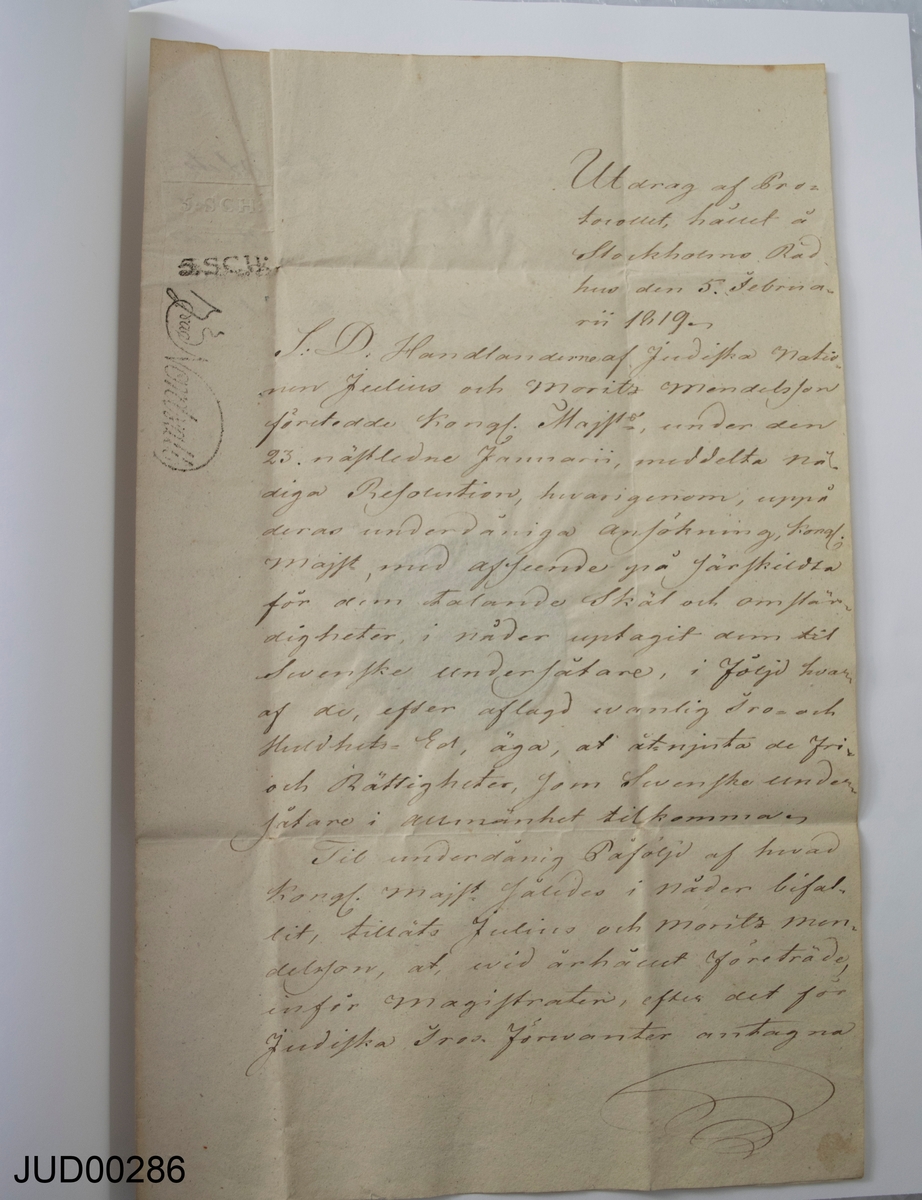 Utdrag af Pro=
tocollet, hållet å
Stockholms Råd
hus den 5. Februa=
rii 1819.
5.SCH.
S. D. Handlanderne af Judiska Natio=
nen Julius och Moritz Mendelsson
företedde Kongl. Majsts, under den
23. nästledne Januarii, meddelta Nå=
diga Resolution, hvarigenom, uppå
deras underdåniga ansökning, Kongl.
Majst, med afseende på särskildta
för dem talande Skäl och omstän=
digheter, i nåder uptagit dem til
Swenske undersåtare, i följd hvar=
af de, efter aflagd wanlig Tro= och
Huldhets= Ed, äga, at åtnjuta de Fri=
och Rättigheter, som Swenske under=
såtare i allmänhet tilkomma.
Til underdånig Påföljd af hvad
Kongl. Majst. således i nåder bifal=
lit, tilläts Julius och Moritz Men=
delsson, at, wid ärhållit företräde,
inför Magistraten, efter det för
Judiska Tros= Förwanter antagna
JUD00286